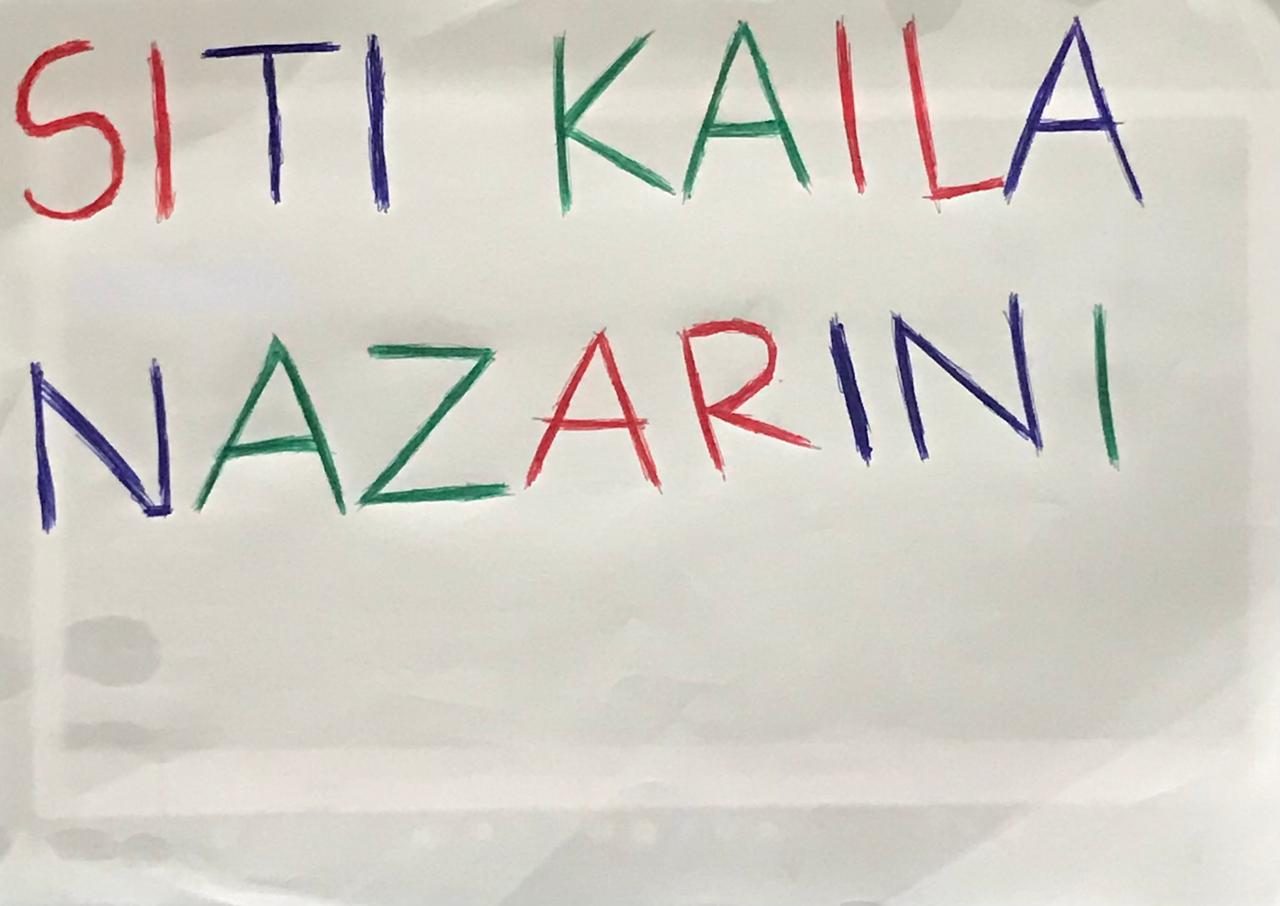 SITI KAILA
NAZARINI